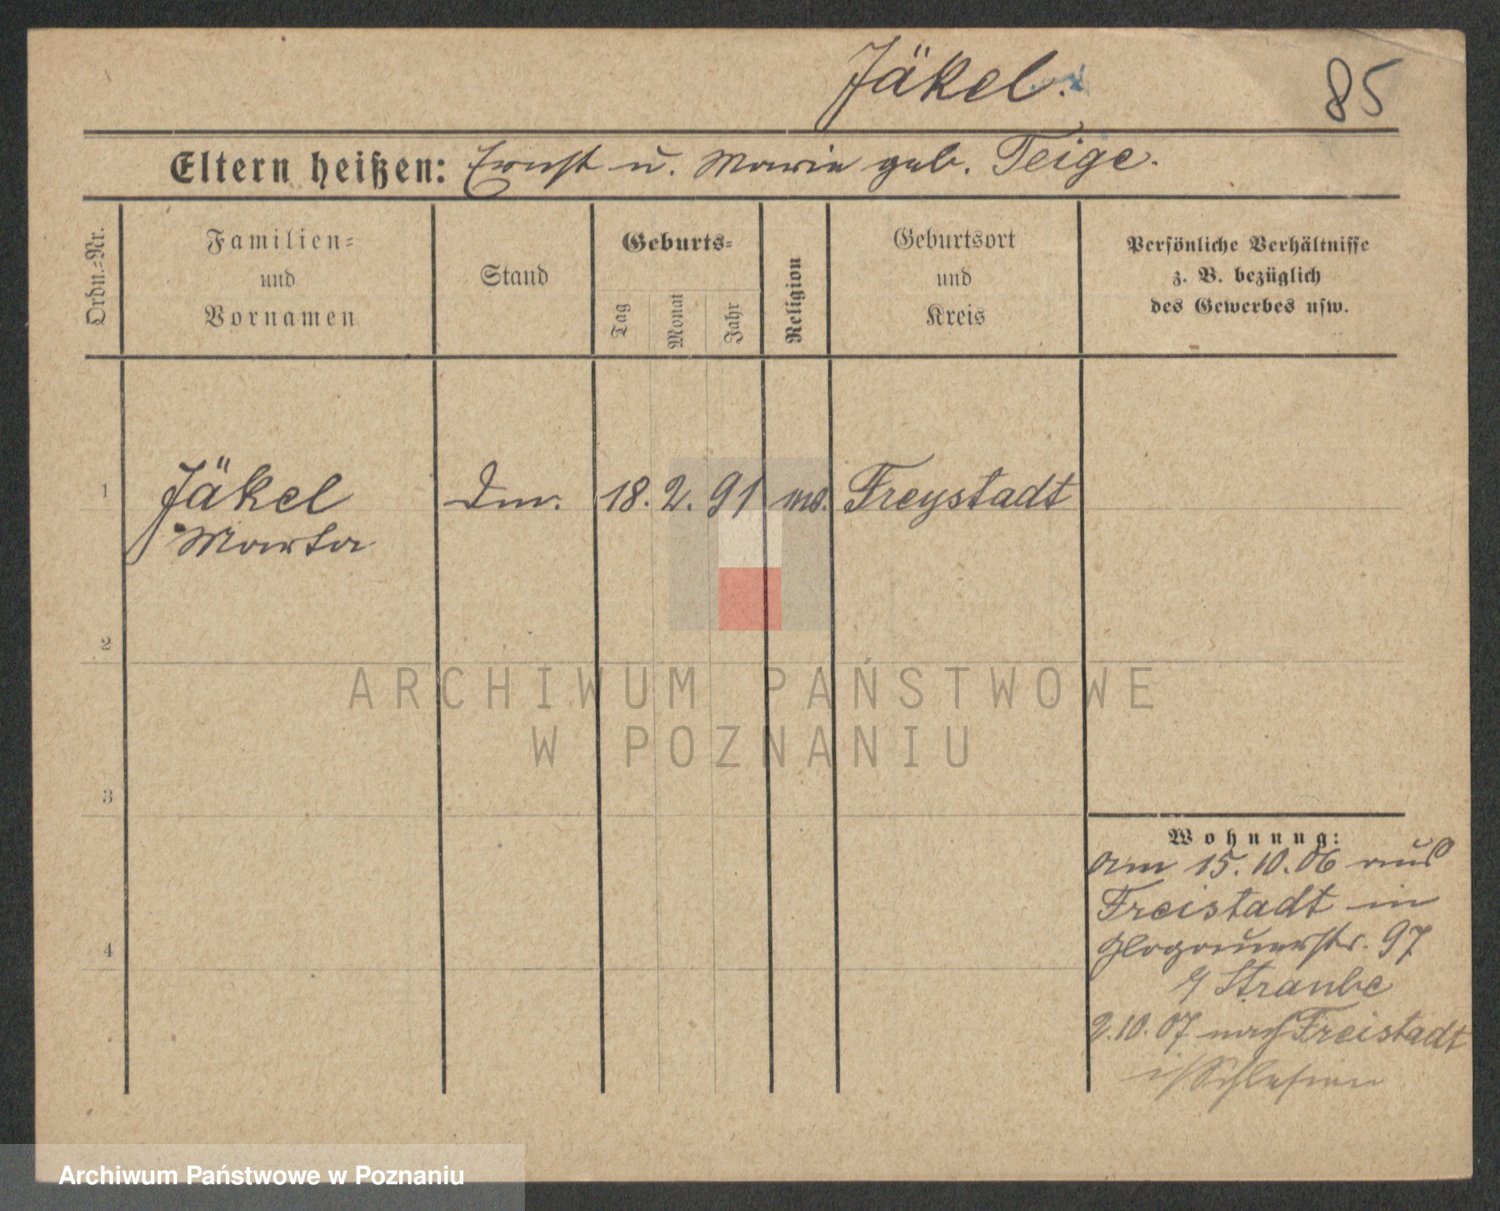 Jäkel.
85
Eltern heißen: Ernst u. Marie geb. Teige.
Ordn.-Nr.
Familien-
und
Vornamen
Stand
Geburts-
Tag
Monat
Jahr
Religion
Geburtsort
und
Kreis
Persönliche Verhältnisse
z. B. bezüglich
des Gewerbes usw.
1
Jäkel
Marta
18. 2. 91
Freystadt
2
3
4
Wohnung:
am 15.10.06 aus
Freistadt in
Glogauerstr. 97
Straube
2.10.07 nach Freistadt
i/Schlesien
ARCHIWUM PAŃSTWOWE
W POZNANIU
Archiwum Państwowe w Poznaniu